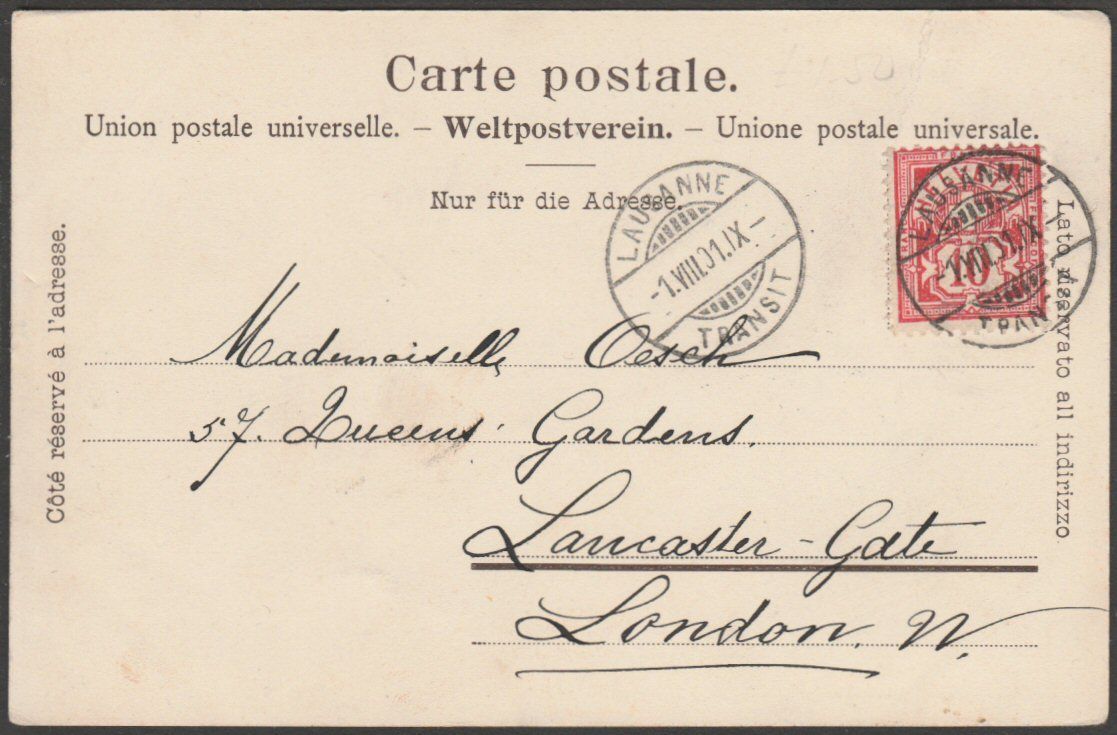 Carte postale.
Union postale universelle. – Weltpostverein. – Unione postale universale.
Nur für die Adresse.
Côté réservé à l'adresse.
Lato riservato all indirizzo.
LAUSANNE
-1.VIII.01.IX-
TRANSIT
LAUSANNE
-1.VIII.01.IX
TRANSIT
10
Mademoiselle Oesch
57. Queens' Gardens.
Lancaster-Gate
London. W.